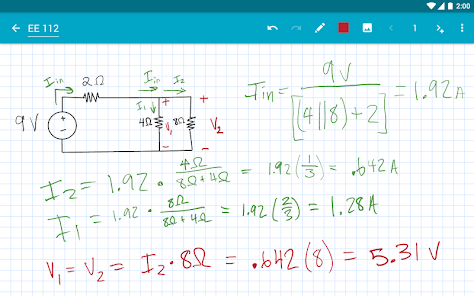 2:00
EE 112
1
I_in 2Ω I_in I_2
I_1
9V + − 4Ω + V_1 − 8Ω + V_2 −
I_in = 9V / [(4||8)+2] = 1.92A
I_2 = 1.92 · 4Ω / 8Ω+4Ω = 1.92(1/3) = .642A
I_1 = 1.92 · 8Ω / 8Ω+4Ω = 1.92(2/3) = 1.28A
V_1 = V_2 = I_2·8Ω = .642(8) = 5.31V